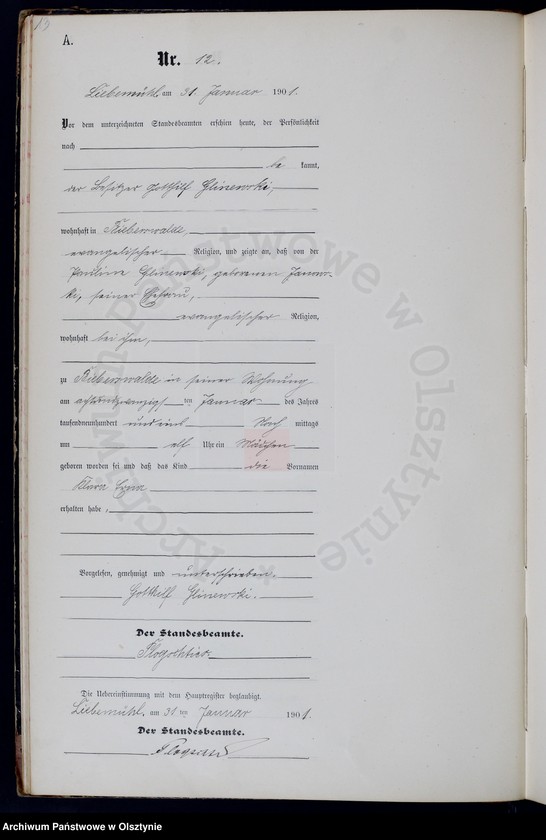 13
A.
Nr. 12.
Liebemühl am 31 Januar 1901.
Vor dem unterzeichneten Standesbeamten erschien heute, der Persönlichkeit
nach
be kannt,
der Besitzer Gotthilf Glinewski,
wohnhaft in Bieberswalde,
evangelischer Religion, und zeigte an, daß von der
Pauline Glinewski, geborenen
seiner Ehefrau,
evangelischer Religion,
wohnhaft bei ihm,
zu Bieberswalde in seiner Wohnung
am achtundzwanzigsten ten Januar des Jahres
tausendneunhundert und eins Nach mittags
um elf Uhr ein Mädchen
geboren worden sei und daß das Kind die Vornamen
Klara Erna
erhalten habe,
Vorgelesen, genehmigt und unterschrieben.
Gotthilf Glinewski.
Der Standesbeamte.
Die Uebereinstimmung mit dem Hauptregister beglaubigt.
Liebemühl, am 31 ten Januar 1901.
Der Standesbeamte.
Archiwum Państwowe w Olsztynie
Archiwum Państwowe w Olsztynie